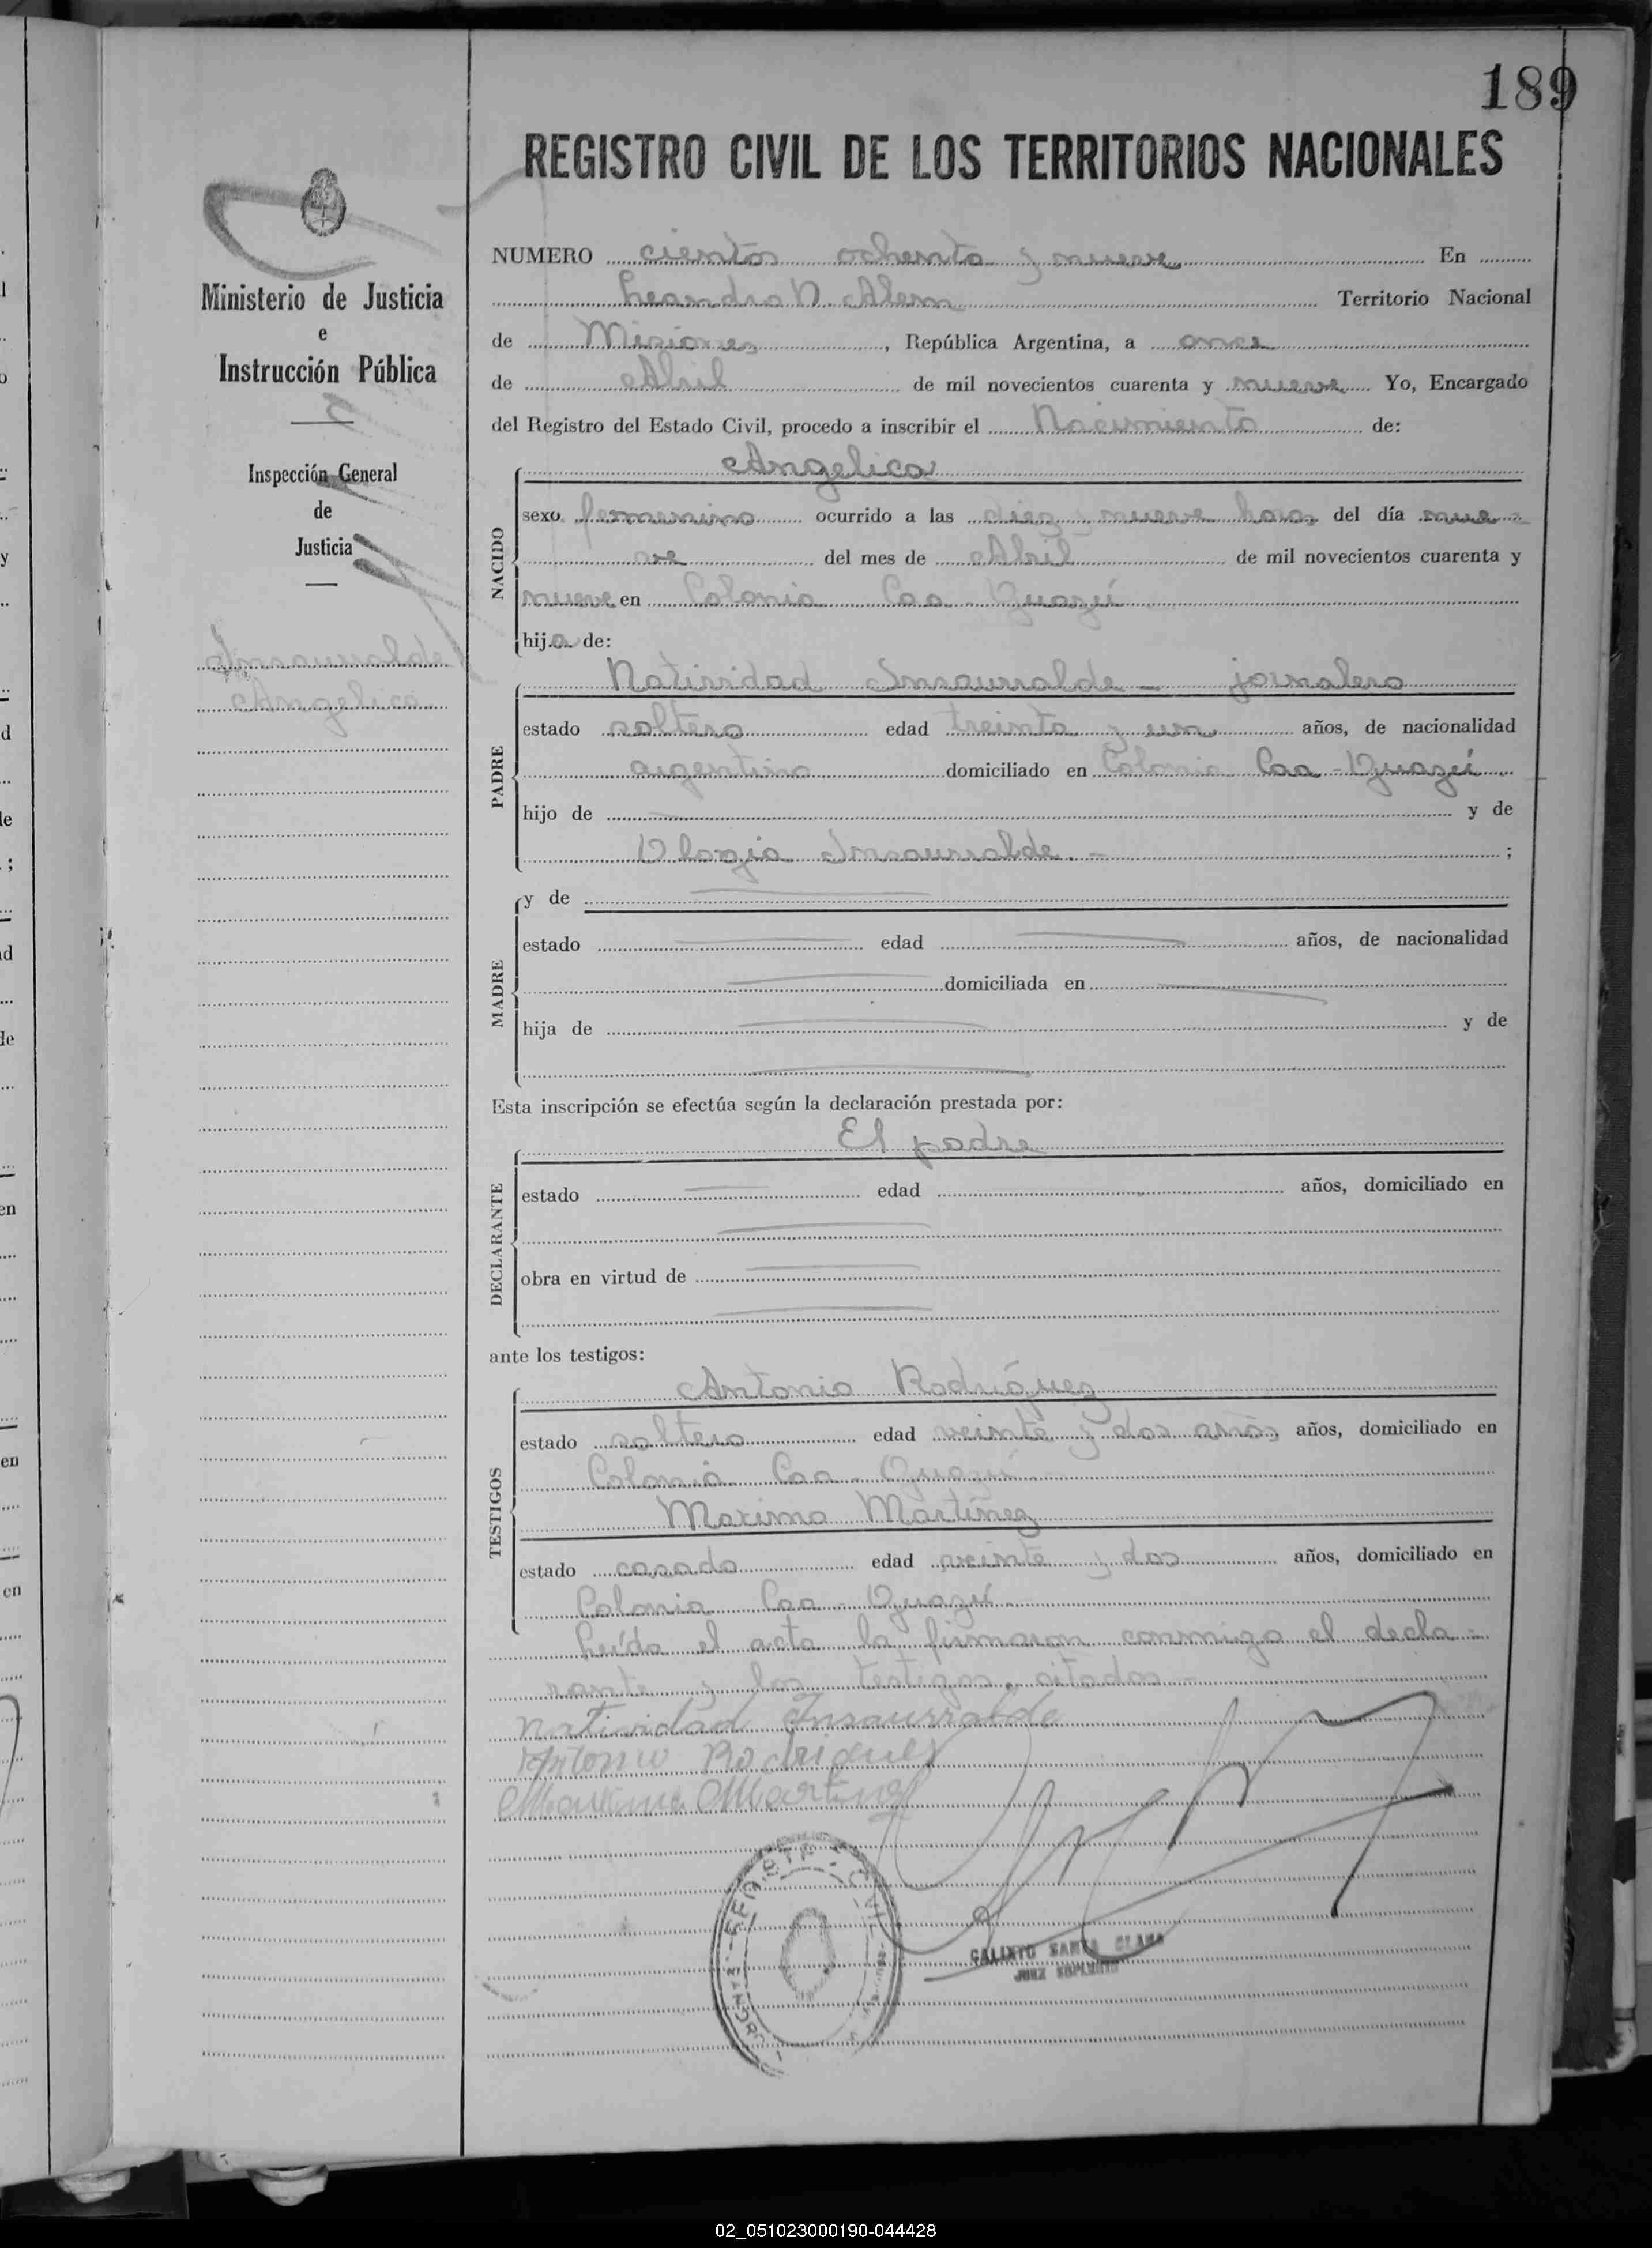 189
REGISTRO CIVIL DE LOS TERRITORIOS NACIONALES
Ministerio de Justicia
e
Instrucción Pública
Inspección General
de
Justicia
Insaurralde
Angelica
NUMERO cientos ochenta y nueve En
Leandro N. Alem Territorio Nacional
de Misiones, República Argentina, a once
de Abril de mil novecientos cuarenta y nueve Yo, Encargado
del Registro del Estado Civil, procedo a inscribir el Nacimiento de:
NACIDO
Angelica
sexo femenino ocurrido a las diez y nueve horas del día nue-
ve del mes de Abril de mil novecientos cuarenta y
nueve en Colonia Caa-Guazú
hija de:
PADRE
Natividad Insaurralde - jornalero
estado soltero edad treinta y un años, de nacionalidad
argentino domiciliado en Colonia Caa-Guazú
hijo de y de
Insaurralde.- ;
MADRE
y de
estado edad años, de nacionalidad
domiciliada en
hija de y de
Esta inscripción se efectúa según la declaración prestada por:
DECLARANTE
El padre
estado edad años, domiciliado en
obra en virtud de
ante los testigos:
TESTIGOS
Antonio Rodríguez
estado soltero edad veinte y dos años años, domiciliado en
Colonia Caa-Guazú.
Maximo Martínez
estado casado edad veinte y dos años, domiciliado en
Colonia Caa-Guazú.
Leída el acta la firmaron conmigo el decla-
rante y los testigos citados.-
Natividad Insaurralde
Antonio Rodriguez
Maximo Martinez
REGISTRO CIVIL
CALIXTO SANTA CLARA
JUEZ SUPLENTE
02_051023000190-044428